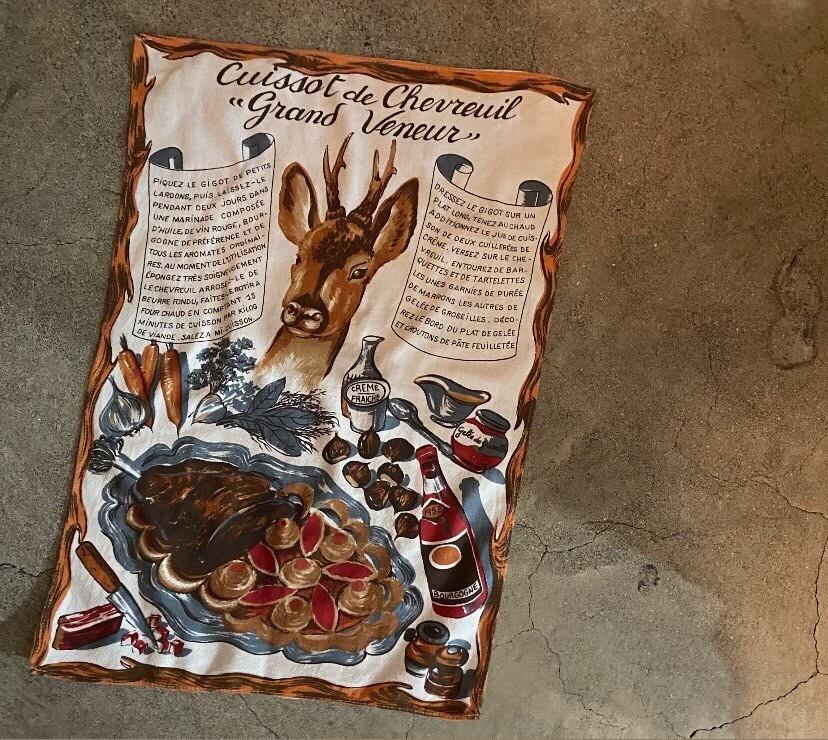 Cuissot de Chevreuil
"Grand Veneur"
PIQUEZ LE GIGOT DE PETITS
LARDONS, PUIS LAISSEZ-LE
PENDANT DEUX JOURS DANS
UNE MARINADE COMPOSÉE
D'HUILE, DE VIN ROUGE, BOUR-
GOGNE DE PRÉFÉRENCE ET DE
TOUS LES AROMATES ORDINAI-
RES. AU MOMENT DE L'UTILISATION
ÉPONGEZ TRÈS SOIGNEUSEMENT
LE CHEVREUIL ARROSEZ-LE DE
BEURRE FONDU, FAITES-LE ROTIR A
FOUR CHAUD EN COMPTANT 15
MINUTES DE CUISSON PAR KILOG
DE VIANDE. SALEZ A MI-CUISSON.
DRESSEZ LE GIGOT SUR UN
PLAT LONG, TENEZ AU CHAUD
ADDITIONNEZ LE JUS DE CUIS-
SON DE DEUX CUILLERÉES DE
CRÈME. VERSEZ SUR LE CHE-
VREUIL. ENTOUREZ DE BAR-
QUETTES ET DE TARTELETTES
LES UNES GARNIES DE PURÉE
DE MARRONS LES AUTRES DE
GELÉE DE GROSEILLES. DÉCO-
REZ LE BORD DU PLAT DE GELÉE
ET CROUTONS DE PÂTE FEUILLETÉE
CREME
FRAICHE
Gelée de
BOURGOGNE